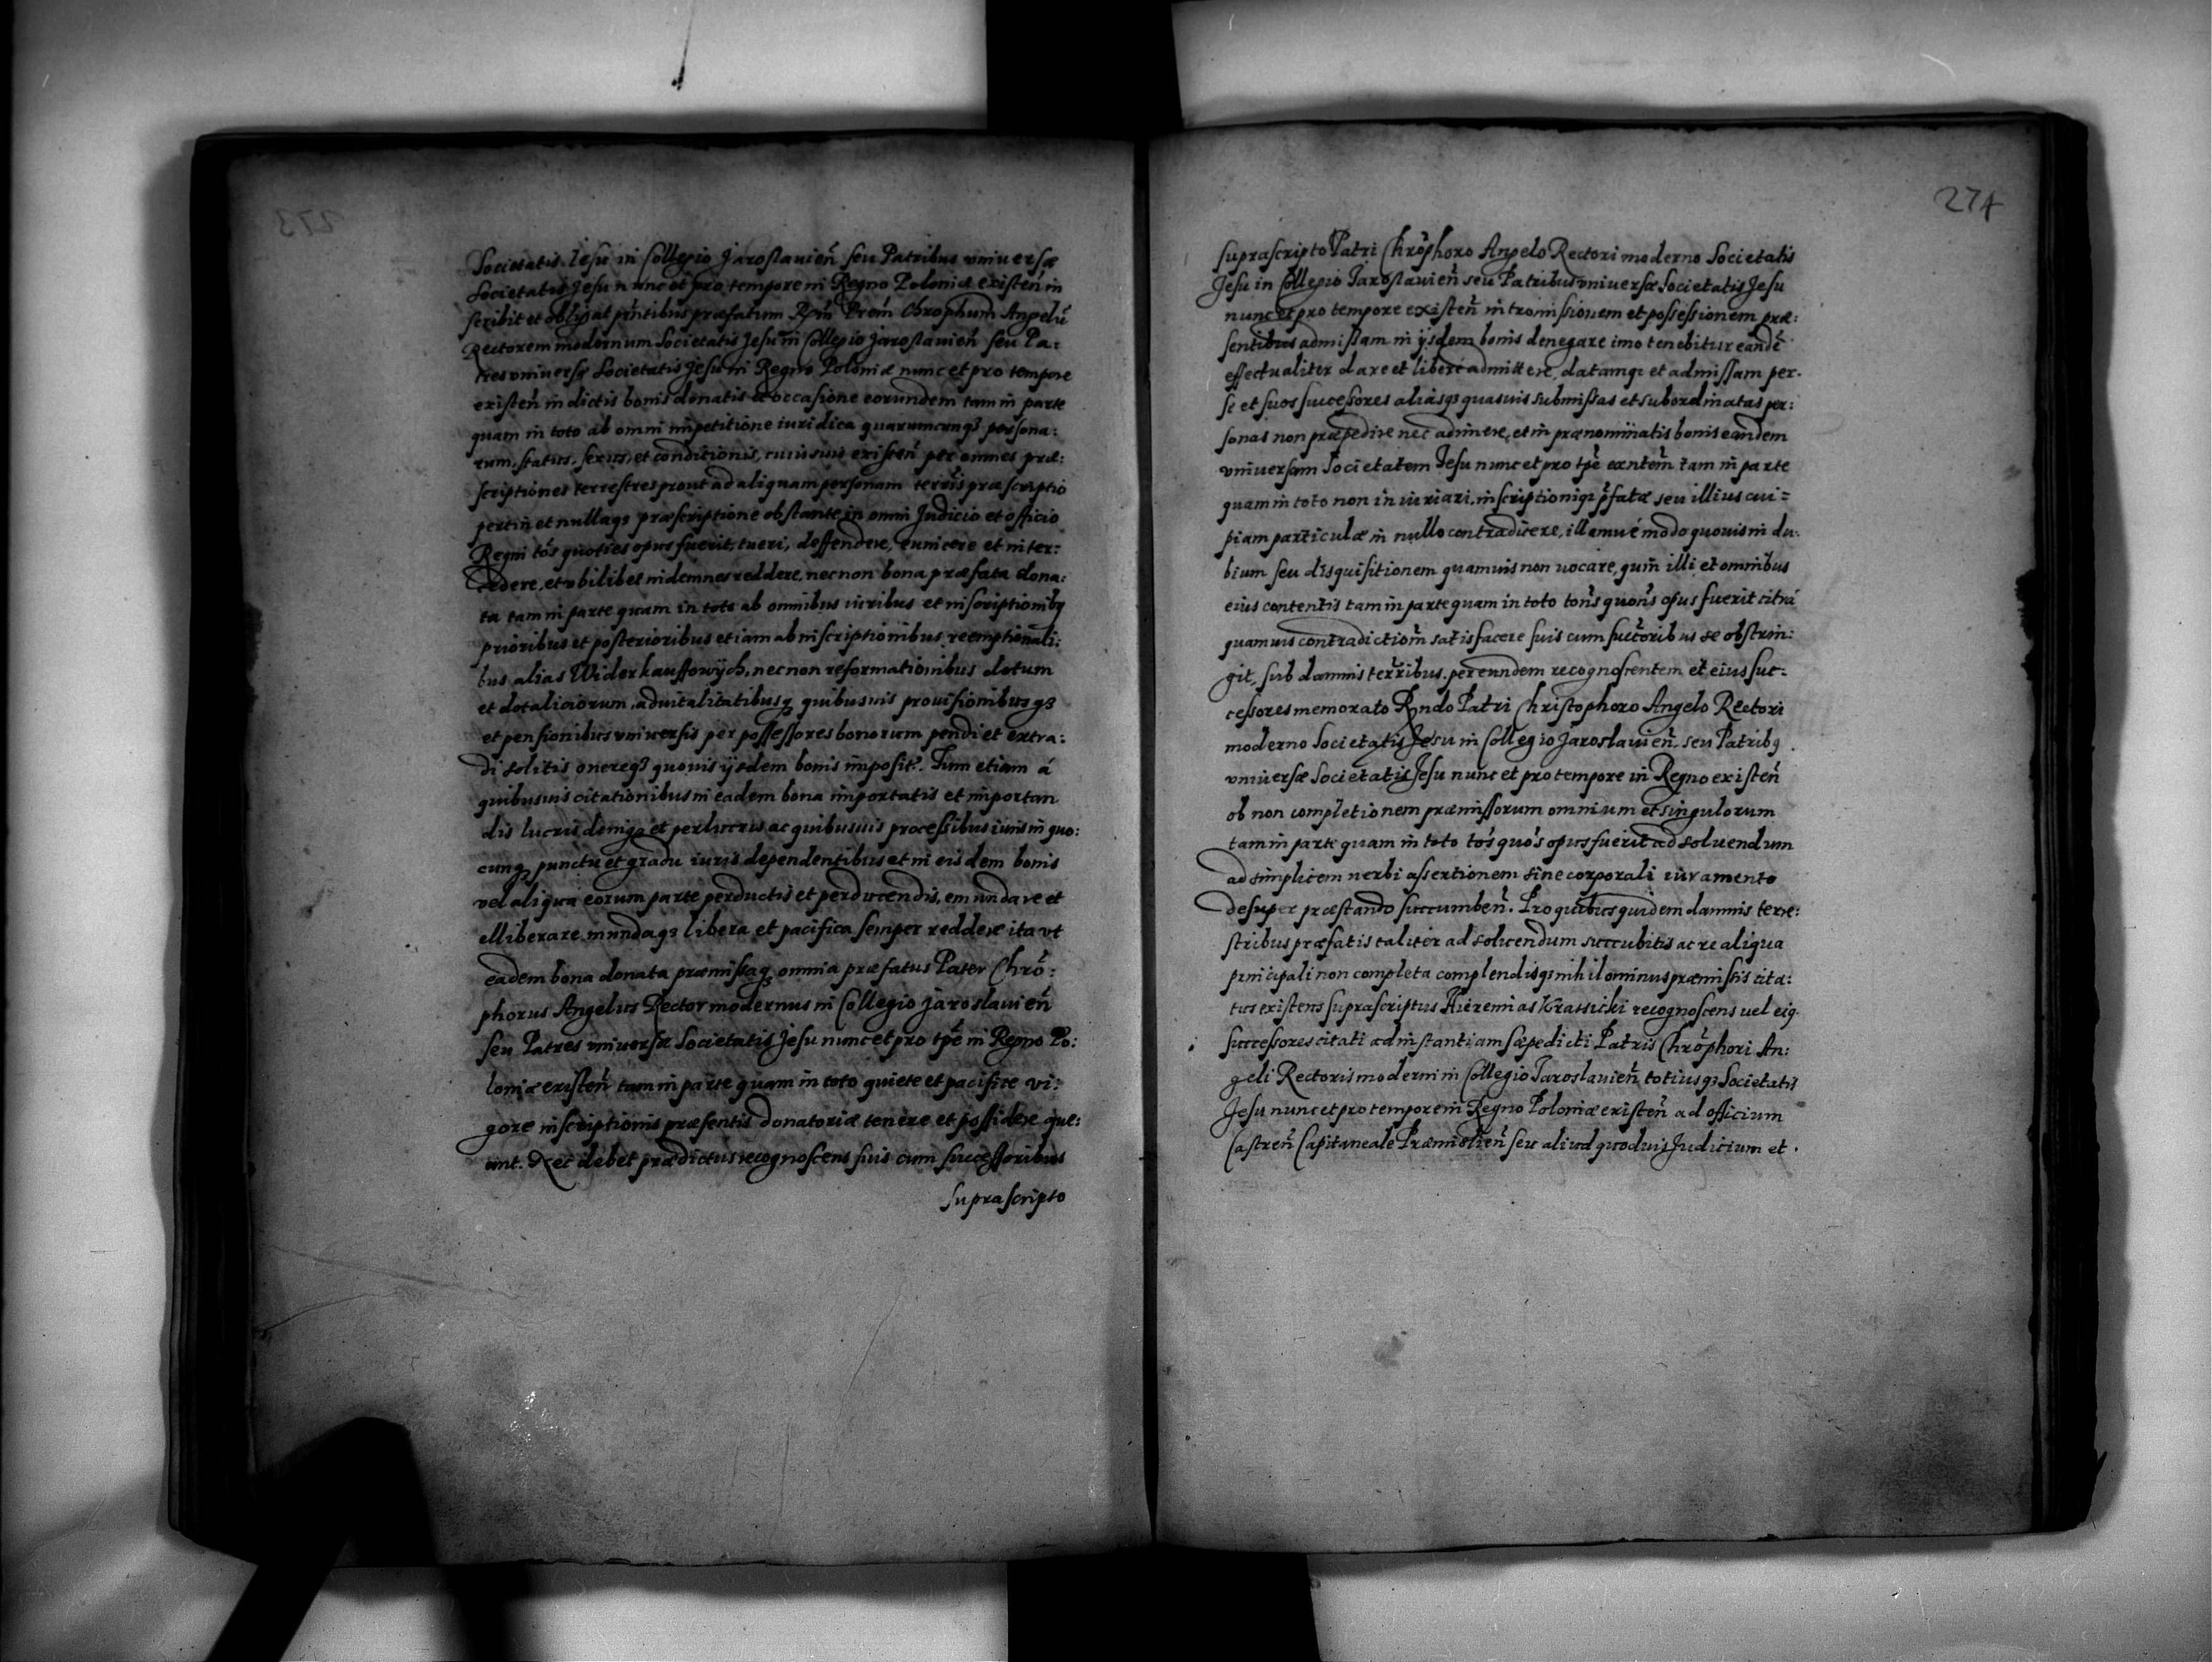 Societatis Jesu in Collegio Jaroslauien̄ seu Patribus vniuersæ
Societatis Jesu nunc et pro tempore in Regno Poloniæ existen̄ in
scribit et obligat pn̄tibus præfatum Rn̄m Prem̄ Chrōphum Angelū
Rectorem modernum Societatis Jesu in Collegio Jaroslauien̄ seu Pa:
tres vniuersæ Societatis Jesu in Regno Poloniæ nunc et pro tempore
existen̄ in dictis bonis donatis et occasione eorundem tam in parte
quam in toto ab omni impetitione iuridica quarumcunqȝ persona:
rum, status, sexus, et conditionis, cuiusuis existen̄ per omnes præ:
scriptiones terrestres prout ad aliquam personam terris̄ præscriptio
pertin̄ et nullaqȝ præscriptione obstante in omni Judicio et officio
Regni tōs quoties opus fuerit, tueri, deffendere, euincere et inter:
cedere, et vbilibet indemnes reddere, nec non bona præfata dona:
ta tam in parte quam in toto ab omnibus iuribus et inscriptionibȝ
prioribus et posterioribus etiam ab inscriptionibus reemptionali:
bus alias Widerkauffowÿch, nec non reformationibus dotum
et dotaliciorum, aduitalitatibusqȝ quibusuis prouisionibusqȝ
et pensionibus vniuersis per possessores bonorum pendi et extra:
di solitis onereqȝ quouis ijsdem bonis imposit?. Tum etiam á
quibusuis citationibus in eadem bona importatis et importan
dis lucris, deniqȝ et perlucris ac quibusuis processibus iuris in quo:
cunqȝ punctu et gradu iuris dependentibus et in eisdem bonis
vel aliqua eorum parte perductis et perducendis, emundare et
elliberare mundaqȝ libera et pacifica semper reddere ita vt
eadem bona donata præmissaqȝ omnia præfatus Pater Chrō:
phorus Angelus Rector modernus in Collegio Jaroslauien̄
seu Patres vniuersæ Societatis Jesu nunc et pro tpē in Regno Po:
loniæ existen̄ tam in parte quam in toto quiete et pacifice vi:
gore inscriptionis præsentis donatoriæ tenere et possidere que:
ant. Nec debet prædictus recognoscens suis cum successoribus
suprascripto
274
suprascripto Patri Chrōphoro Angelo Rectori moderno Societatis
Jesu in Collegio Jaroslauien̄ seu Patribus vniuersæ Societatis Jesu
nunc et pro tempore existen̄ intromissionem et possessionem præ:
sentibus admissam in ijsdem bonis denegare imo tenebitur eandē
effectualiter dare et liberé admittere, datamqȝ et admissam per
se et suos successores aliasqȝ quasuis submissas et subordinatas per:
sonas non præpedire nec adimere, et in prænominatis bonis eandem
vniuersam Societatem Jesu nunc et pro tpē exn̄tem̄ tam in parte
quam in toto non iniuriari, inscriptioniqȝ p̄fatæ seu illius cui=
piam particulæ in nullo contradicere, illamué modo quouis in du:
bium seu disquisitionem quamuis non uocare, quin illi et omnibus
eius contentis tam in parte quam in toto ton̄s quon̄s opus fuerit citrá
quamuis contradictiom̄ satisfacere suis cum succ̄oribus se obstrin:
git, sub damnis terr̄ibus per eundem recognoscentem et eius suc:
cessores memorato Rn̄do Patri Christophoro Angelo Rectori
moderno Societatis Jesu in Collegio Jaroslauien̄ seu Patribȝ
vniuersæ Societatis Jesu nunc et pro tempore in Regno existen̄
ob non completionem præmissorum omnium et singulorum
tam in parte quam in toto tōs quōs opus fuerit ad soluendum
ad simplicem uerbi assertionem sine corporali iuramento
desuper præstando succumben̄. Pro quibus quidem damnis terre:
stribus præfatis taliter ad soluendum succubitis ac re aliqua
principali non completa complendisqȝ nihilominus præmissis cita:
tus existens suprascriptus Hieremias Krassicki recognoscens uel eiȝ
successores citati ad instantiam sæpedicti Patris Chrōphori An:
geli Rectoris moderni in Collegio Jaroslauien̄ totiusqȝ Societatis
Jesu nunc et pro tempore in Regno Poloniæ existen̄ ad officium
Castren̄ Capitaneale Præmislien̄ seu aliud quoduis Judicium et